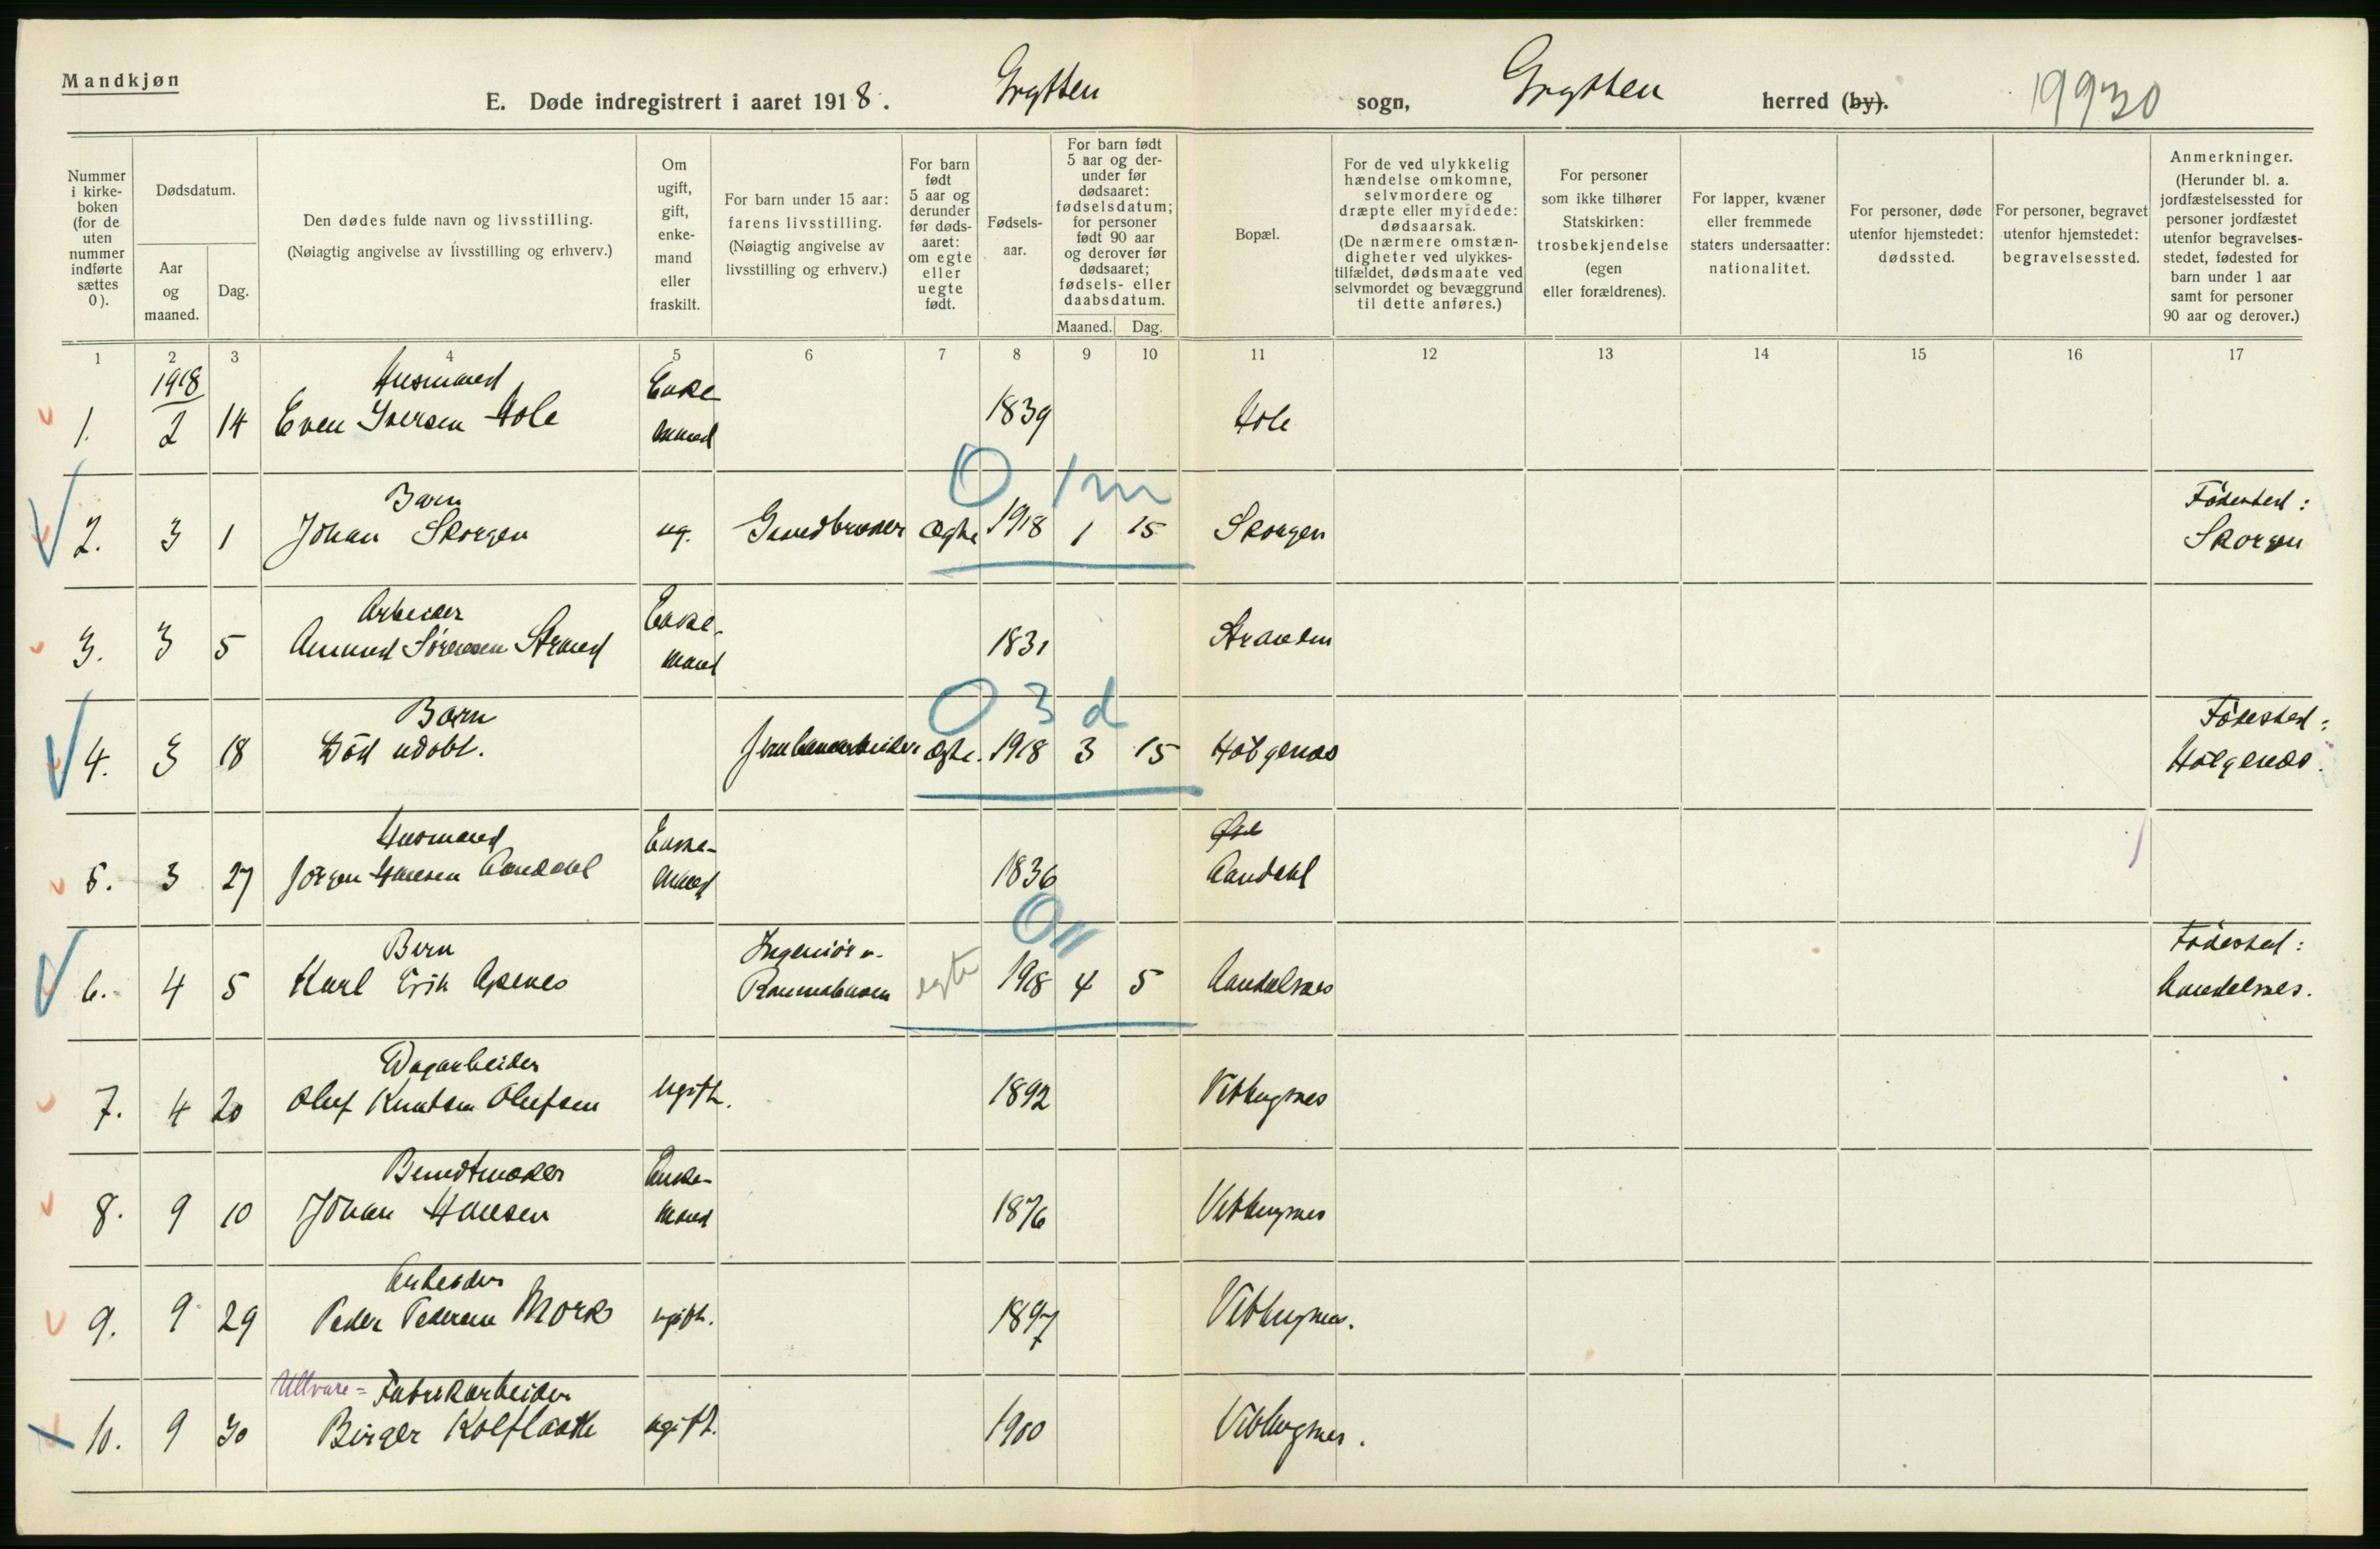 Mandkjøn
E. Døde indregistrert i aaret 1918. Grytten sogn, Grytten herred (by). 19930
Nummer i kirkeboken (for de uten nummer indførte sættes 0).
Dødsdatum.
Aar og maaned.
Dag.
Den dødes fulde navn og livsstilling.
(Nøiagtig angivelse av livsstilling og erhverv.)
Om ugift, gift, enkemand eller fraskilt.
For barn under 15 aar: farens livsstilling.
(Nøiagtig angivelse av livsstilling og erhverv.)
For barn født 5 aar og derunder før dødsaaret: om egte eller uegte født.
Fødselsaar.
For barn født 5 aar og derunder før dødsaaret: fødselsdatum; for personer født 90 aar og derover før dødsaaret; fødsels- eller daabsdatum.
Maaned. Dag.
Bopæl.
For de ved ulykkelig hændelse omkomne, selvmordere og dræpte eller myrdede: dødsaarsak.
(De nærmere omstændigheter ved ulykkestilfældet, dødsmaate ved selvmordet og bevæggrund til dette anføres.)
For personer som ikke tilhører Statskirken: trosbekjendelse (egen eller forældrenes).
For lapper, kvæner eller fremmede staters undersaatter: nationalitet.
For personer, døde utenfor hjemstedet: dødssted.
For personer, begravet utenfor hjemstedet: begravelsessted.
Anmerkninger.
(Herunder bl. a. jordfæstelsessted for personer jordfæstet utenfor begravelsesstedet, fødested for barn under 1 aar samt for personer 90 aar og derover.)
1 2 3 4 5 6 7 8 9 10 11 12 13 14 15 16 17
1918 Husmand Enke
1. 2 14 Even Iversen Hole mand 1839 Hole
0 1 m
Barn Fødested:
2. 3 1 Johan Skorgen ug. Gaardbruker Ægte 1918 1 15 Skorgen Skorgen
Arbeider Enke-
3. 3 5 Amund Sørensen Strand mand 1831 Stranden
0 3 d
Barn Fødested:
4. 3 18 Død udøbt. Jernbanearbeider Ægte. 1918 3 15 Holgenes Holgenes.
Husmand Enke-
5. 3 27 Jørgen Hansen Aandahl mand 1836 Aandahl
0 11
Barn Ingeniør v. Fødested:
6. 4 5 Karl Erik Apenes Raumabanen egte 1918 4 5 Aandalsnes Aandalsnes.
Dagarbeider
7. 4 20 Oluf Knutsen Olufsen Ugift. 1892 Veblugsnes
Bundtmaker Enke-
8. 9 10 Johan Hansen mand 1876 Veblugsnes
Arbeider
9. 9 29 Peder Pedersen Mork ugift. 1897 Veblugsnes.
Ullvare= Fabrikarbeider
10. 9 30 Birger Kolflaath ugift. 1900 Veblugsnes.